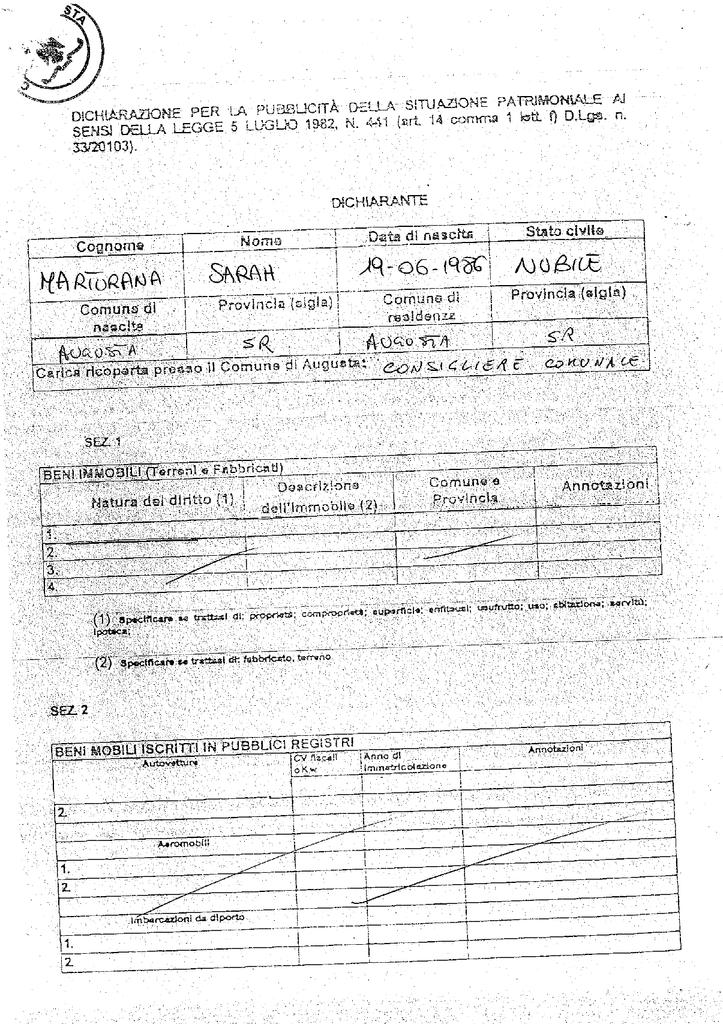 STA
DICHIARAZIONE PER LA PUBBLICITÀ DELLA SITUAZIONE PATRIMONIALE AI
SENSI DELLA LEGGE 5 LUGLIO 1982, N. 441 (art. 14 comma 1 lett. f) D.Lgs. n.
33/20103).
DICHIARANTE
Cognome Nome Data di nascita Stato civile
MARTORANA SARAH 19-06-1986 NUBILE
Comune di nascita Provincia (sigla) Comune di residenza Provincia (sigla)
AUGUSTA SR AUGUSTA SR
Carica ricoperta presso il Comune di Augusta: CONSIGLIERE COMUNALE
SEZ. 1
BENI IMMOBILI (Terreni e Fabbricati)
Natura del diritto (1) Descrizione dell'immobile (2) Comune e Provincia Annotazioni
1.
2.
3.
4.
(1) Specificare se trattasi di: proprietà; comproprietà; superficie; enfiteusi; usufrutto; uso; abitazione; servitù;
ipoteca;
(2) Specificare se trattasi di: fabbricato, terreno
SEZ. 2
BENI MOBILI ISCRITTI IN PUBBLICI REGISTRI
Autovetture CV fiscali o Kw Anno di immatricolazione Annotazioni
2.
Aeromobili
1.
2.
Imbarcazioni da diporto
1.
2.